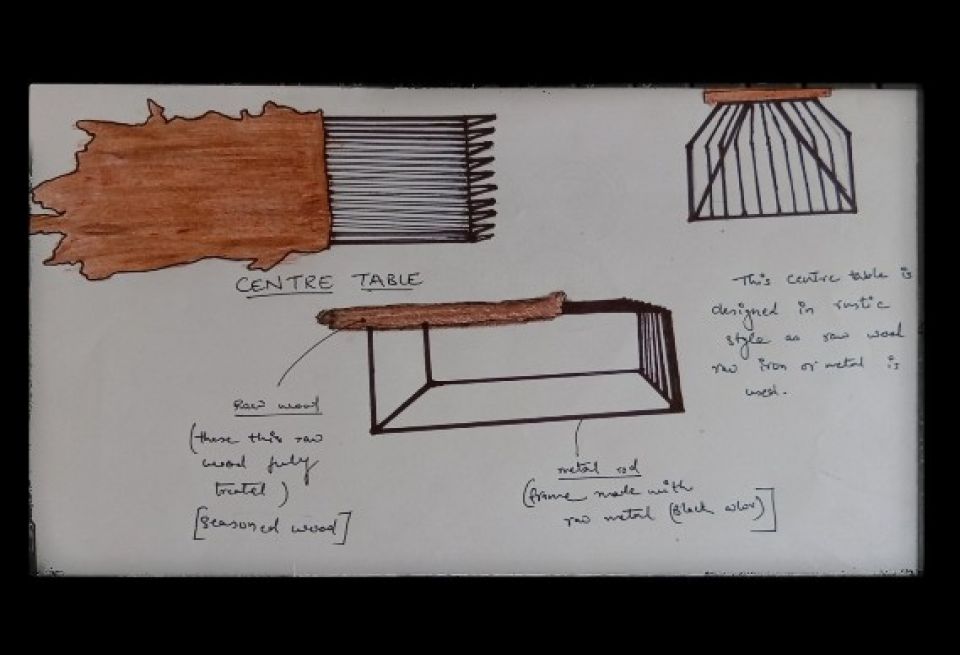 CENTRE TABLE
This centre table is
designed in rustic
style as raw wood
raw iron or metal is
used.
Raw wood
(these this raw
wood fully
treated)
[Seasoned wood]
metal rod
(frame made with
raw metal (Black color)]